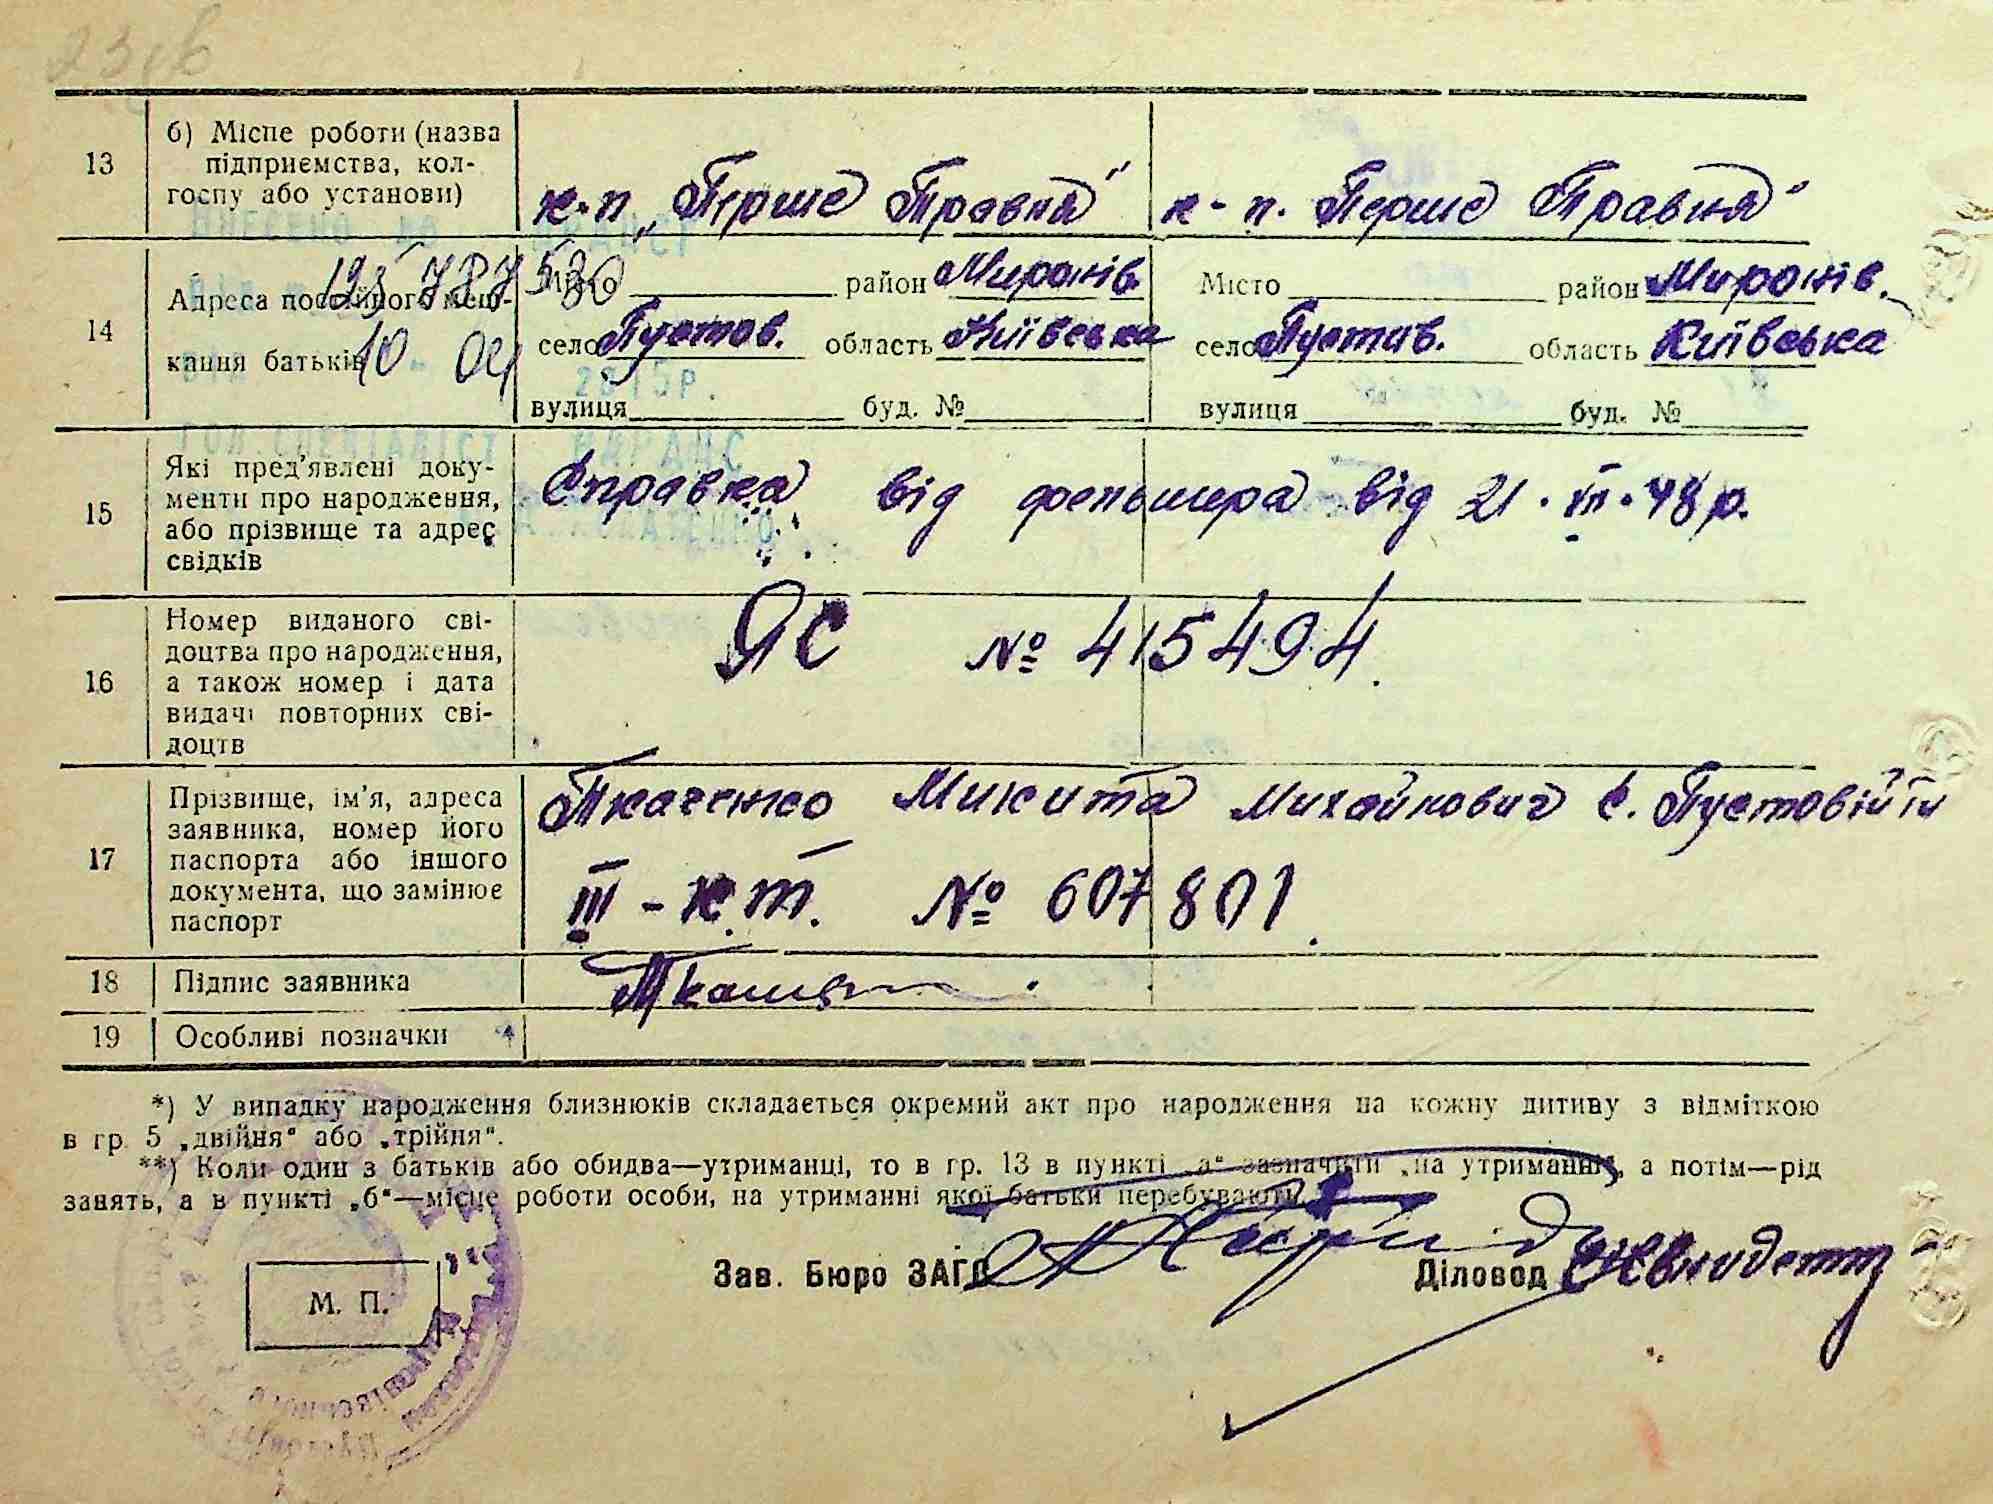 13
б) Місце роботи (назва
підприємства, кол-
госпу або установи)
к-п „Перше Травня"
к-п. Перше Травня"
ВНЕСЕНО ДО
14
Адреса постійного меш-
кання батьків
195 787 530
10 04
2015 р.
Місто район Миронів.
село Пустов. область Київська
вулиця буд. №
Місто район Миронів.
село Пустов. область Київська
вулиця буд. №
ГОЛ.СПЕЦІАЛІСТ ВАРАЦС
15
Які пред'явлені доку-
менти про народження,
або прізвище та адрес
свідків
Справка від фельшера від 21.III.48 р.
16
Номер виданого сві-
доцтва про народження,
а також номер і дата
видачі повторних сві-
доцтв
ЯС № 415494.
17
Прізвище, ім'я, адреса
заявника, номер його
паспорта або іншого
документа, що замінює
паспорт
Ткаченко Микита Михайлович с. Пустовійти
III-к.т. № 607801.
18
Підпис заявника
19
Особливі позначки
*) У випадку народження близнюків складається окремий акт про народження на кожну дитину з відміткою
в гр. 5 „двійня" або „трійня".
**) Коли один з батьків або обидва—утриманці, то в гр. 13 в пункті „а" зазначити „на утриманні", а потім—рід
занять, а в пункті „б"—місце роботи особи, на утриманні якої батьки перебувають.
М. П.
Зав. Бюро ЗАГС
Діловод